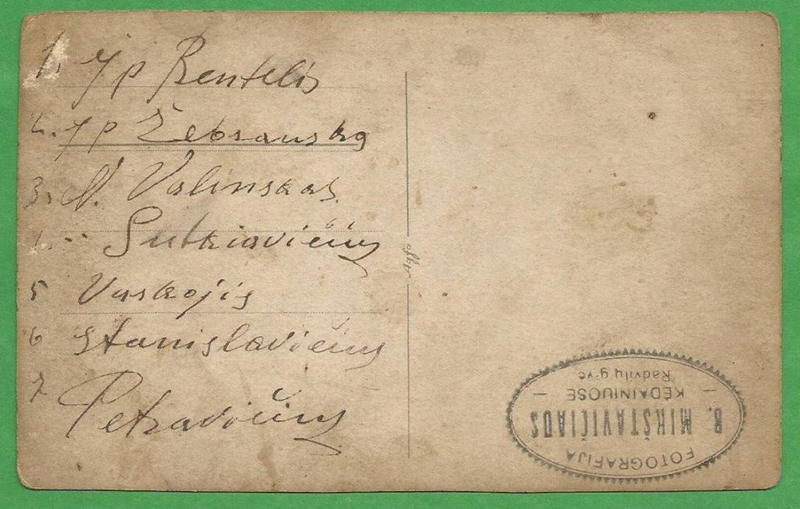 1. jp Rentelis
2. jp Žebrauską
3. N. Valinskas
Sutkiavičius
5 Vaskojis
6 Stanislavičius
7 Petkavičius
FOTOGRAFIJA
B. MIKŠTAVIČIAUS
— KĖDAINIUOSE —
Radvilų g-vė